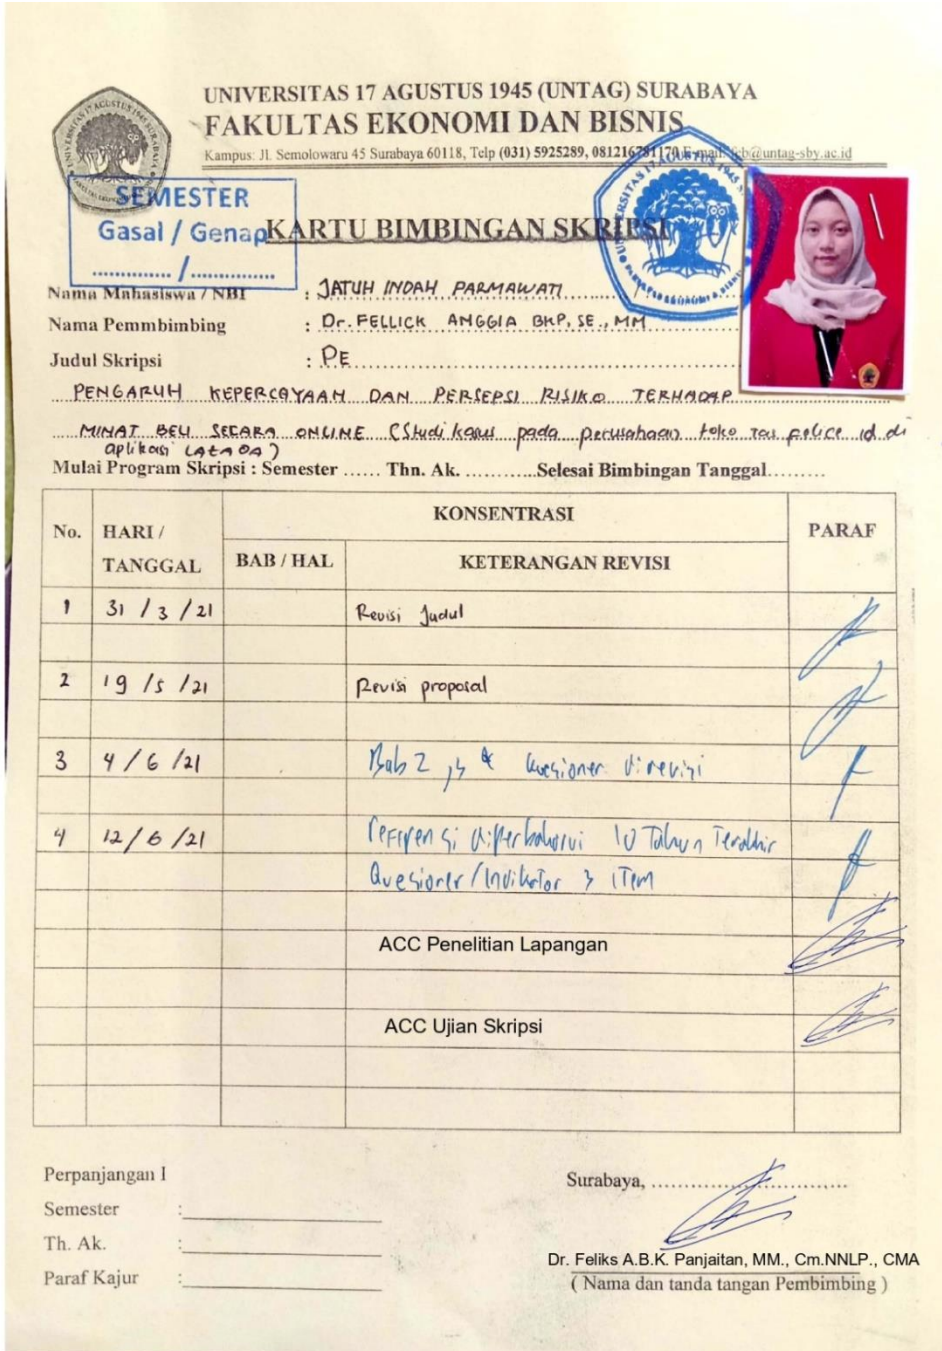 UNIVERSITAS 17 AGUSTUS 1945 (UNTAG) SURABAYA
FAKULTAS EKONOMI DAN BISNIS
Kampus: Jl. Semolowaru 45 Surabaya 60118, Telp (031) 5925289, 081216781170 E-mail: feb@untag-sby.ac.id
SEMESTER
Gasal / Genap
............. / ..............
KARTU BIMBINGAN SKRIPSI
Nama Mahasiswa / NBI : JATUH INDAH PARMAWATI
Nama Pemmbimbing : Dr. FELLICK ANGGIA BKP, SE., MM
Judul Skripsi : PE
PENGARUH KEPERCAYAAN DAN PERSEPSI RISIKO TERHADAP
MINAT BELI SECARA ONLINE (Studi kasus pada perusahaan toko tas police id di
aplikasi LAZADA)
Mulai Program Skripsi : Semester ...... Thn. Ak. ............Selesai Bimbingan Tanggal.........
No. HARI / TANGGAL KONSENTRASI PARAF
BAB / HAL KETERANGAN REVISI
1 31 / 3 / 21 Revisi Judul
2 19 / 5 / 21 Revisi proposal
3 4 / 6 / 21 Bab 2, 3 & kuesioner direvisi
4 12 / 6 / 21 referensi diperbaharui 10 Tahun Terakhir
Quesioner / Indikator 3 ITem
ACC Penelitian Lapangan
ACC Ujian Skripsi
Perpanjangan I
Semester :
Th. Ak. :
Paraf Kajur :
Surabaya, ....................................
Dr. Feliks A.B.K. Panjaitan, MM., Cm.NNLP., CMA
( Nama dan tanda tangan Pembimbing )